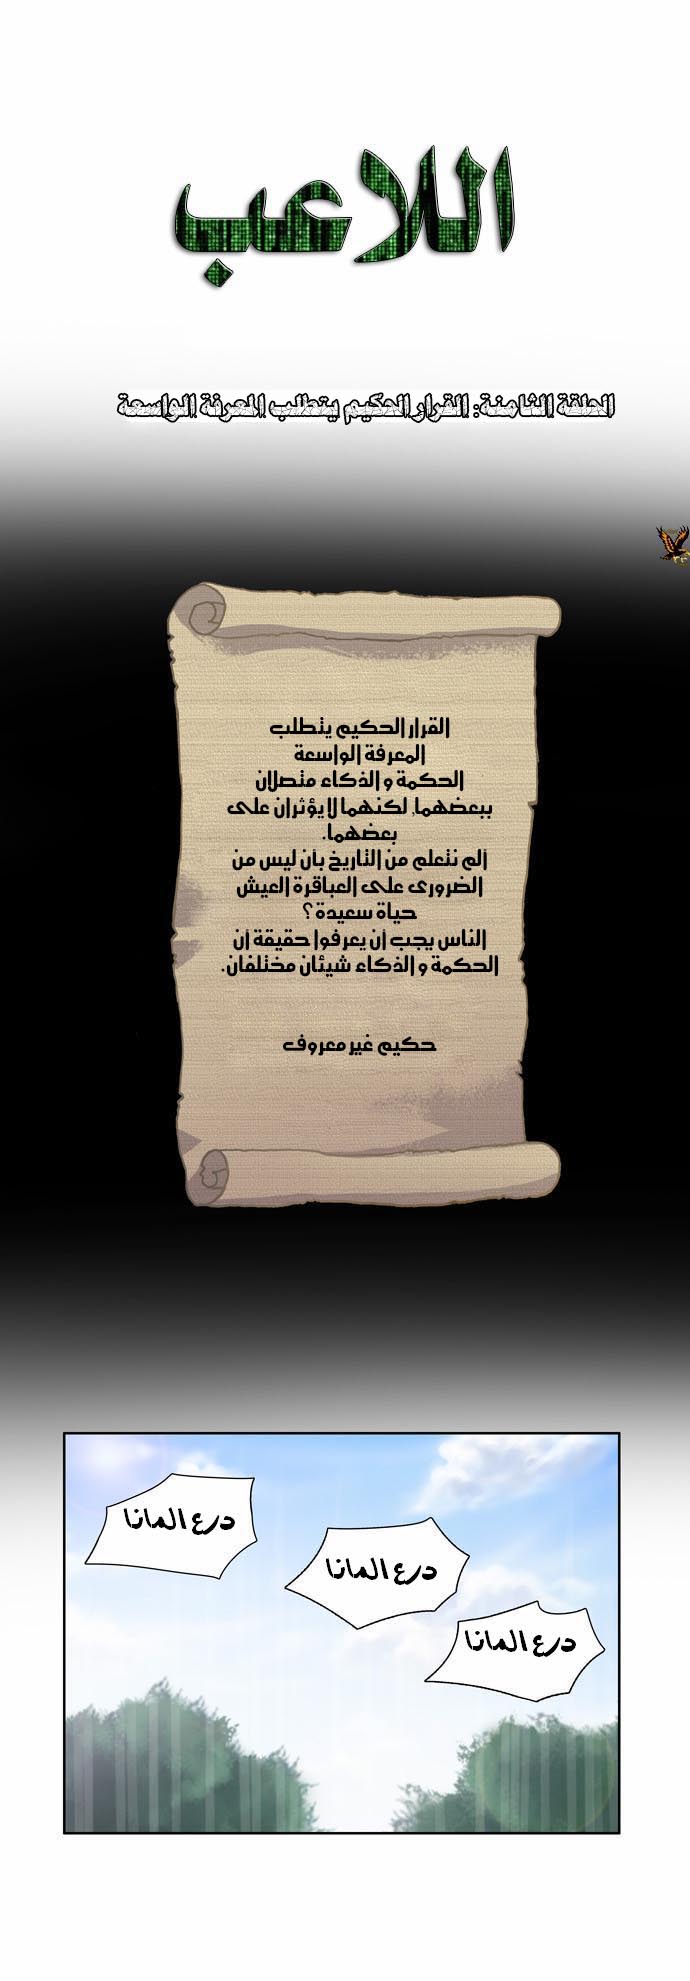 اللاعب
الحلقة الثامنة: القرار الحكيم يتطلب المعرفة الواسعة
القرار الحكيم يتطلب
المعرفة الواسعة
الحكمة و الذكاء متصلان
ببعضهما، لكنهما لا يؤثران على
بعضهما.
ألم نتعلم من التاريخ بأن ليس من
الضروري على العباقرة العيش
حياة سعيدة ؟
الناس يجب أن يعرفوا حقيقة أن
الحكمة و الذكاء شيئان مختلفان.
حكيم غير معروف
درع المانا
درع المانا
درع المانا